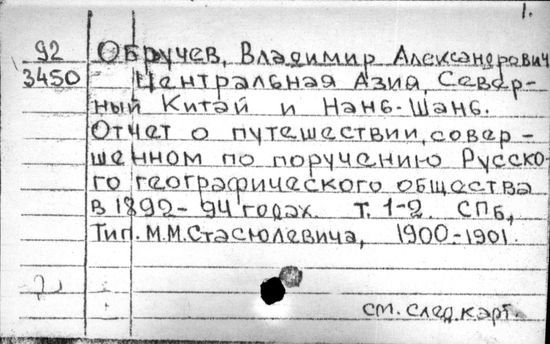 1.
92 Обручев, Владимир Александрович
3450 Центральная Азия, Север-
ный Китай и Нань-Шань.
Отчет о путешествии, совер-
шенном по поручению Русско-
го географического общества
в 1892-94 годах. Т. 1-2. СПб,
Тип. М.М.Стасюлевича, 1900-1901.
см. след. карт.